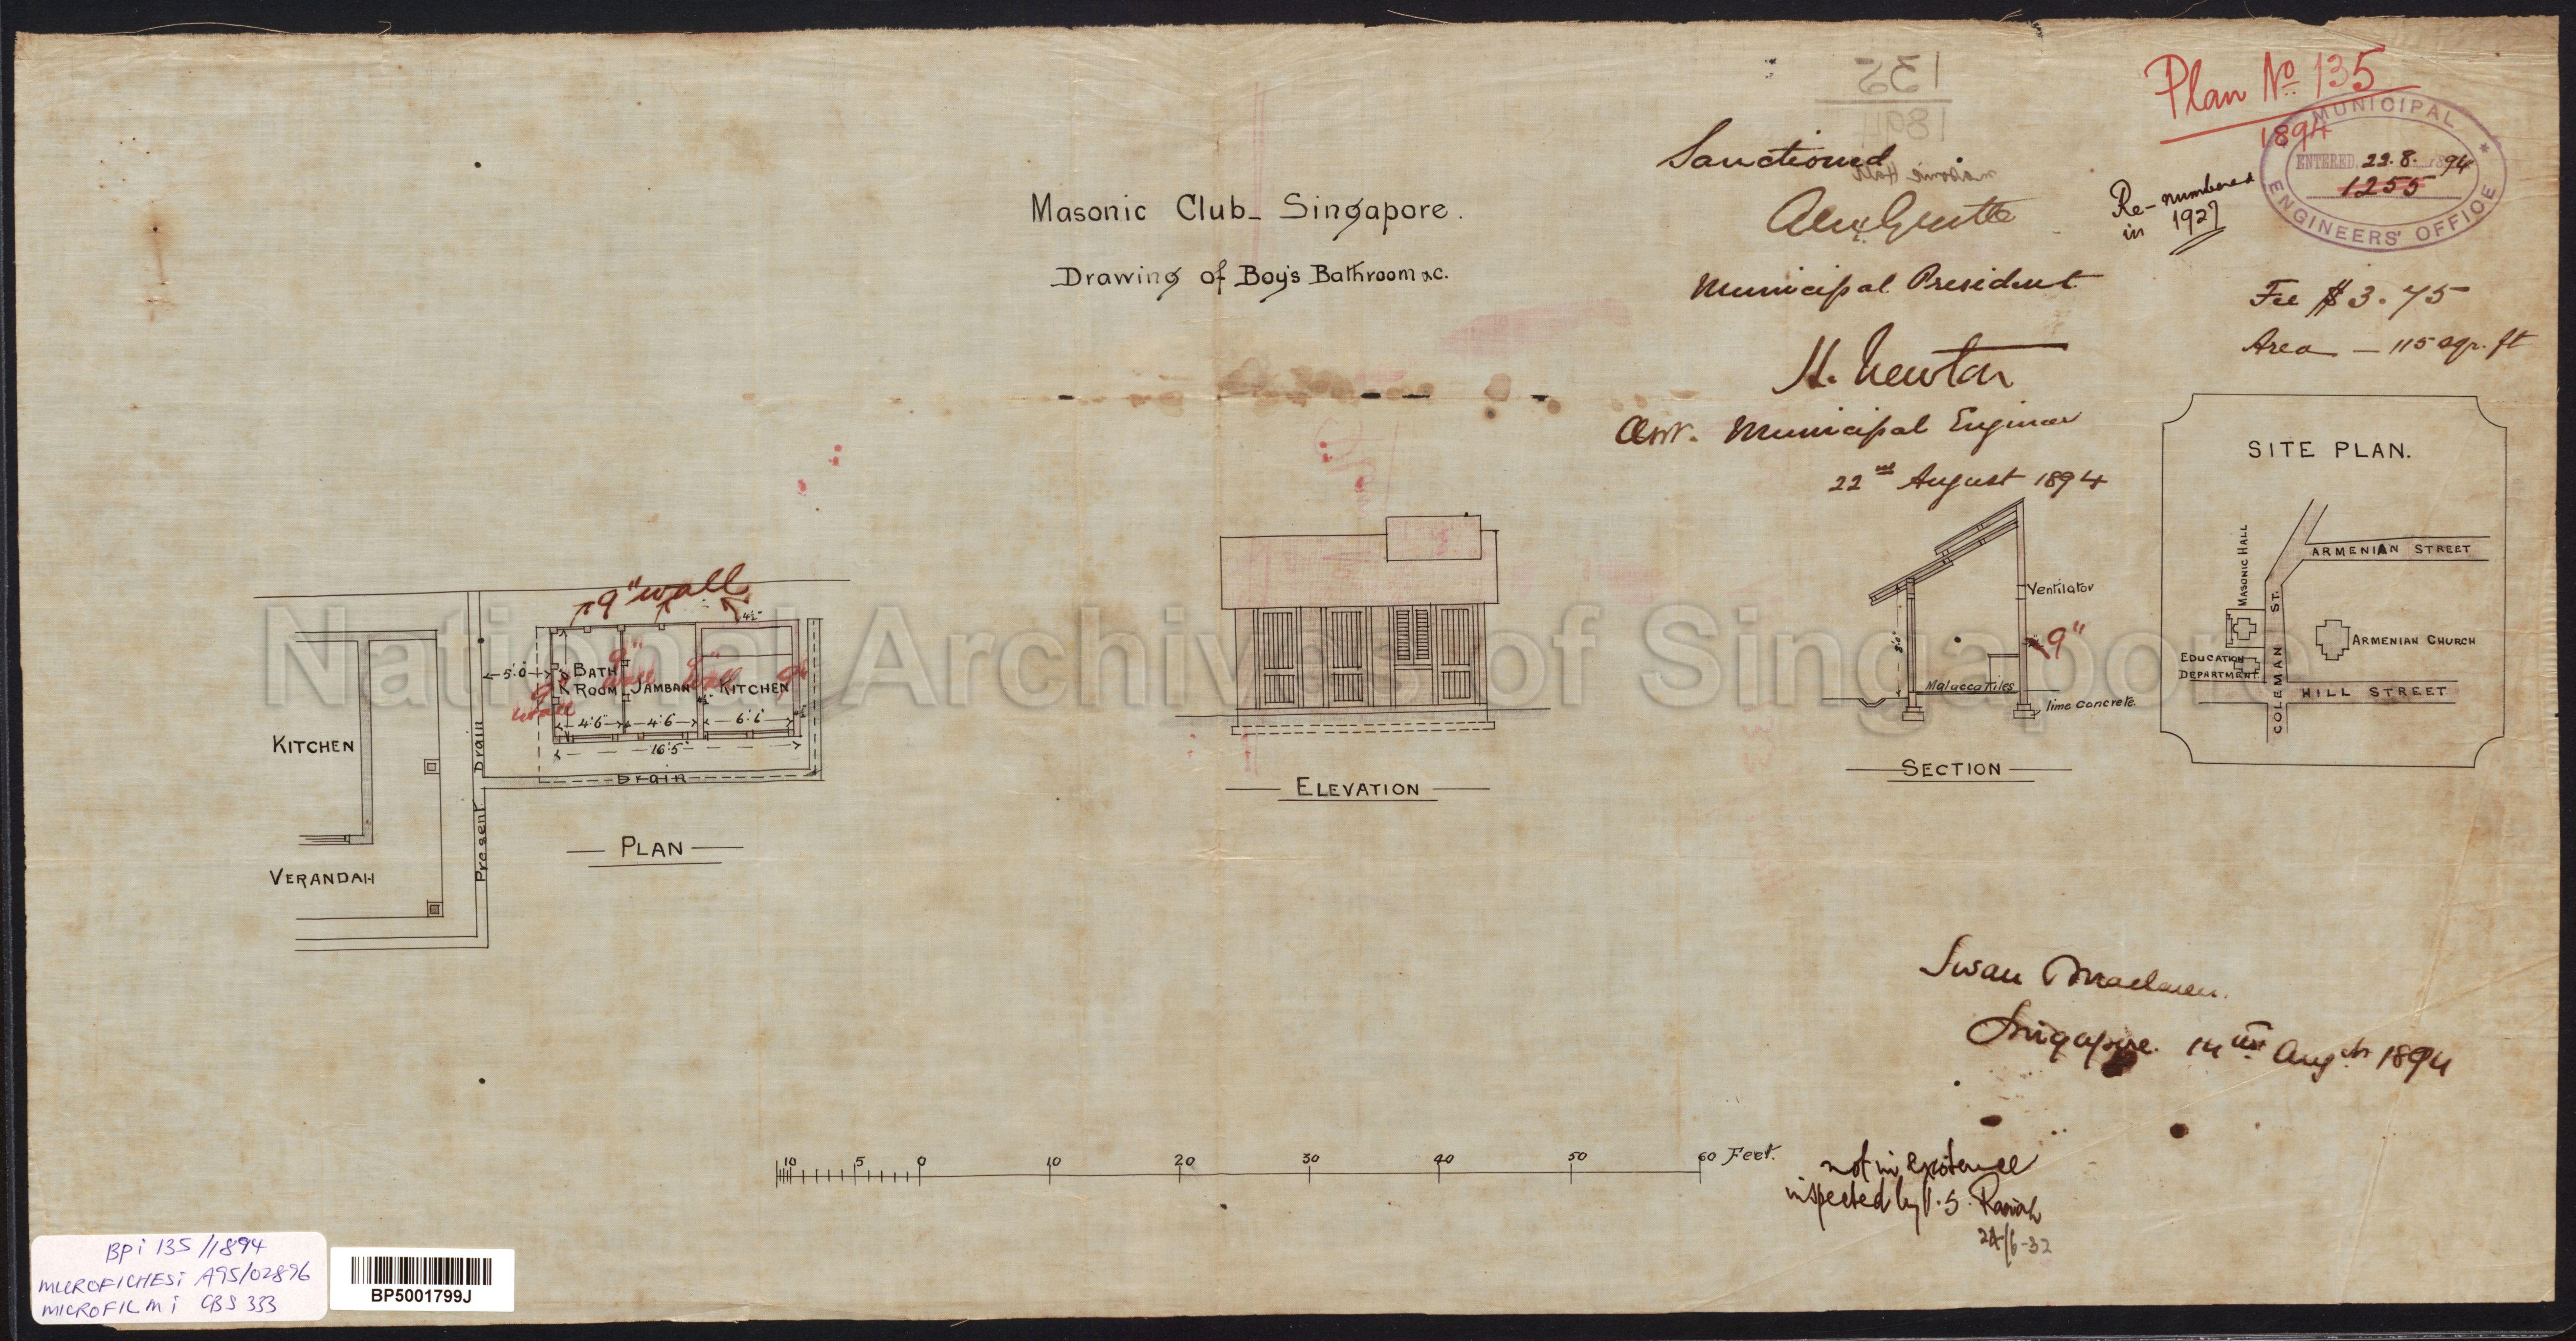 Masonic Club_ Singapore.
Drawing of Boy's Bathroom &c.
135
1894
Masonic Hall
Sanctioned
Municipal President
H. Newton
Asst. Municipal Engineer
22nd August 1894
Plan No 135
1894
Re-numbered
in 1927
MUNICIPAL
ENGINEERS' OFFICE
ENTERED 22.8.1894
1255
Fee $3.75
Area — 115 sqr. ft
SITE PLAN.
MASONIC HALL
ARMENIAN STREET
COLEMAN ST.
ARMENIAN CHURCH
EDUCATION
DEPARTMENT
HILL STREET
9" wall
4½"
5'.0"
BATH
ROOM
JAMBAN
KITCHEN
9"
wall
9"
wall
9"
wall
9"
4'.6"
4'.6"
6'.6"
16'.5"
Drain
Present Drain
KITCHEN
VERANDAH
PLAN
ELEVATION
Ventilator
9"
8'.0"
Malacca Tiles
lime concrete.
SECTION
National Archives of Singapore
Swan & Maclaren.
Singapore. 14th Augst 1894
10 5 0 10 20 30 40 50 60 Feet.
not in existence
inspected by
24/6-32
BPi 135/1894
MICROFICHESi A95/02896
MICROFILMi CBS 333
BP5001799J